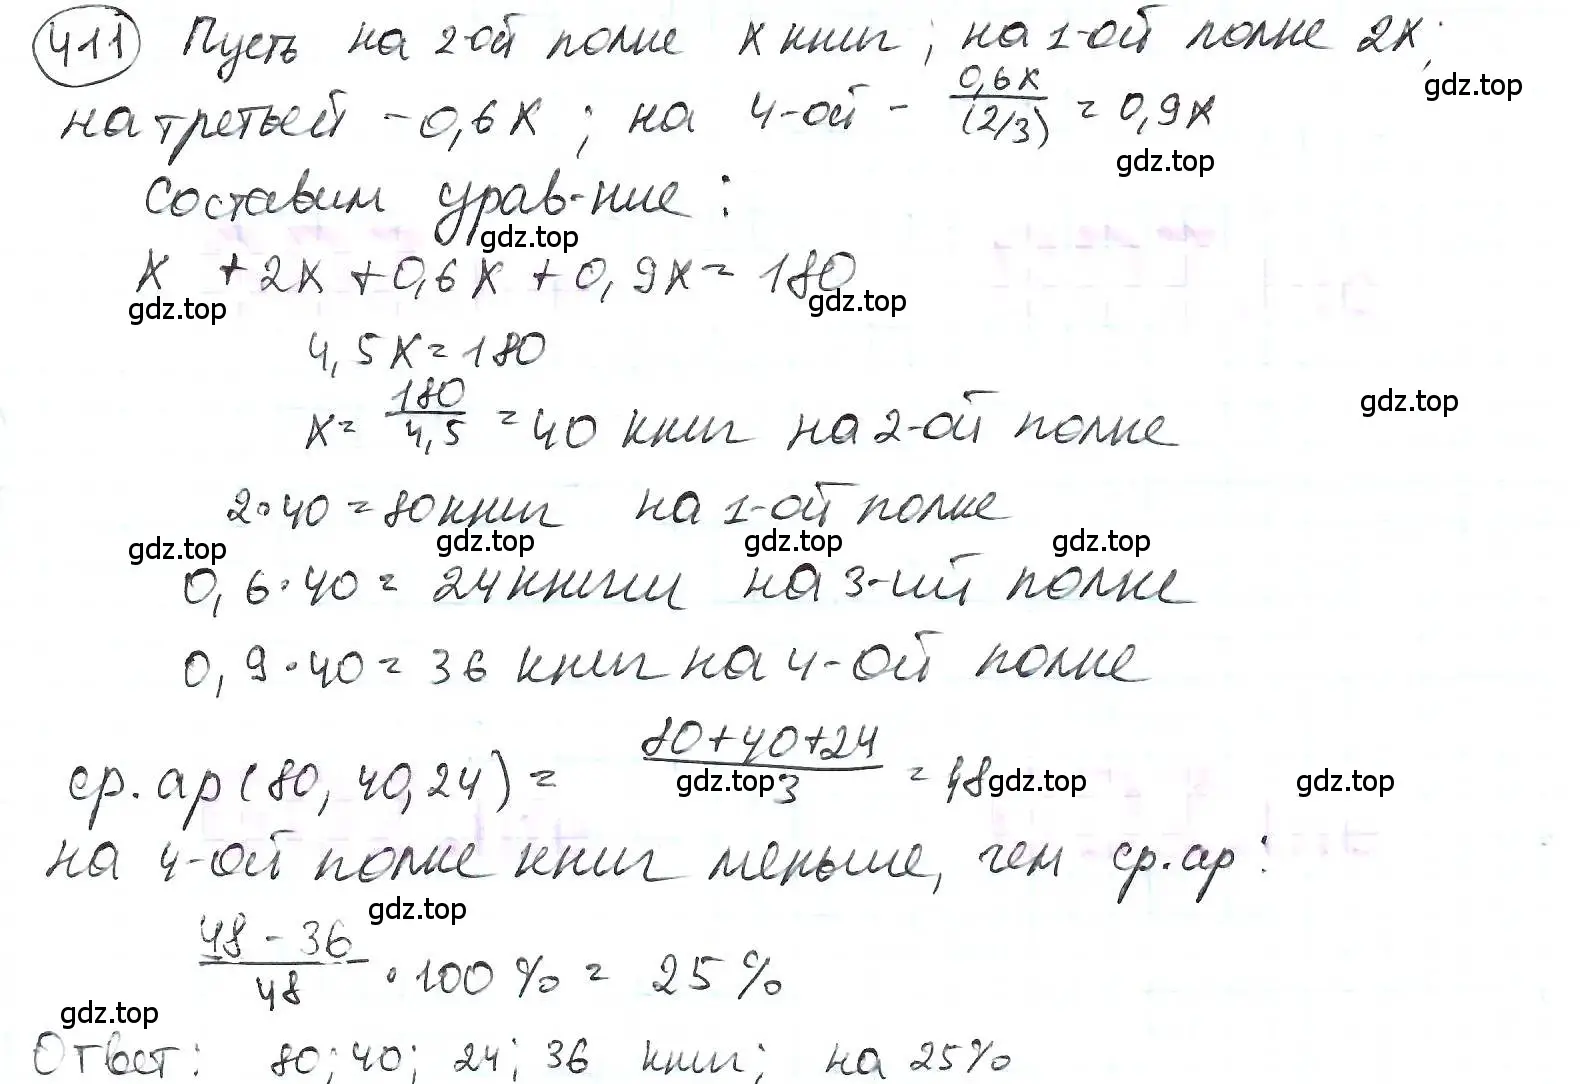 411 Пусть на 2-ой полке x книг; на 1-ой полке 2x;
gdz.top
на третьей - 0,6x; на 4-ой - 0,6x/(2/3) = 0,9x
gdz.top
Составим урав-ние:
gdz.top
x + 2x + 0,6x + 0,9x = 180
gdz.top gdz.top
4,5x = 180
x = 180/4,5 = 40 книг на 2-ой полке
gdz.top
2·40 = 80 книг на 1-ой полке
gdz.top gdz.top gdz.top gdz.top
0,6·40 = 24 книги на 3-ий полке
0,9·40 = 36 книг на 4-ой полке
ср.ар(80,40,24) = (80+40+24)/3 = 48
gdz.top gdz.top gdz.top
на 4-ой полке книг меньше, чем ср.ар:
gdz.top
(48-36)/48 · 100% = 25%
gdz.top
Ответ: 80; 40; 24; 36 книг; на 25%